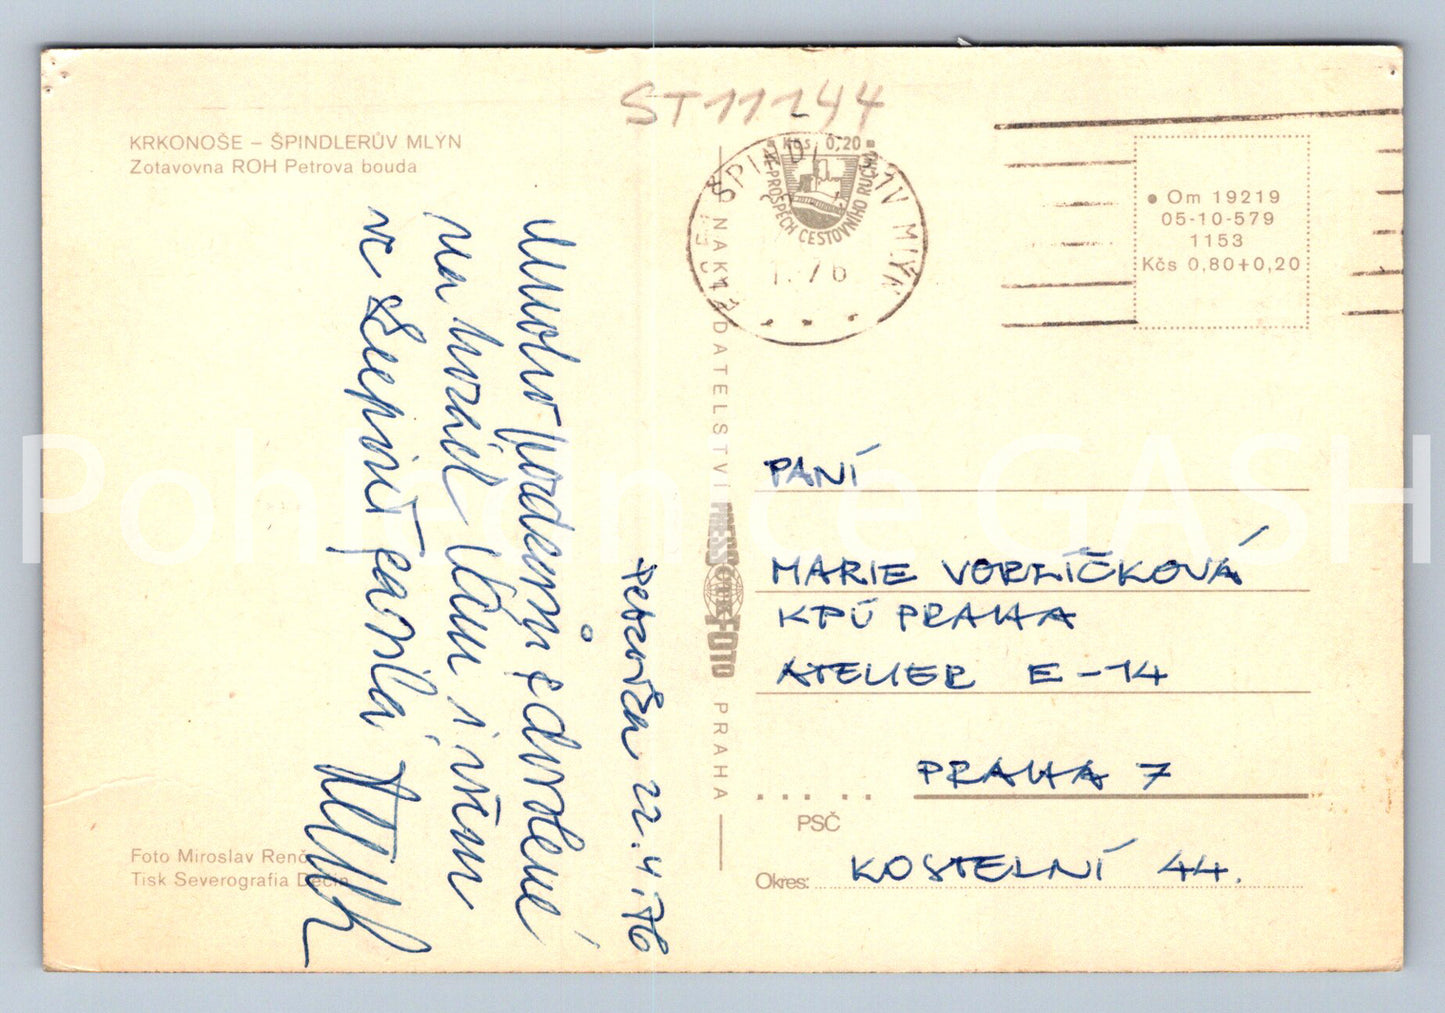 ST11244
KRKONOŠE – ŠPINDLERŮV MLÝN
Zotavovna ROH Petrova bouda
Mnoho pozdravů z dovolené
na horách Vám i všem
ve
Petrovka 22.4.76
Kčs 0,20
VE PROSPĚCH CESTOVNÍHO RUCHU
ŠPINDLERŮV MLÝN
.76
Om 19219
05-10-579
1153
Kčs 0,80+0,20
NAKLADATELSTVÍ PRESSFOTO PRAHA
PANÍ
MARIE VORLÍČKOVÁ
KPÚ PRAHA
ATELIER E-14
PRAHA 7
PSČ
Okres: KOSTELNÍ 44.
Foto Miroslav Renč
Tisk Severografia Děčín
Pohlednice GASH